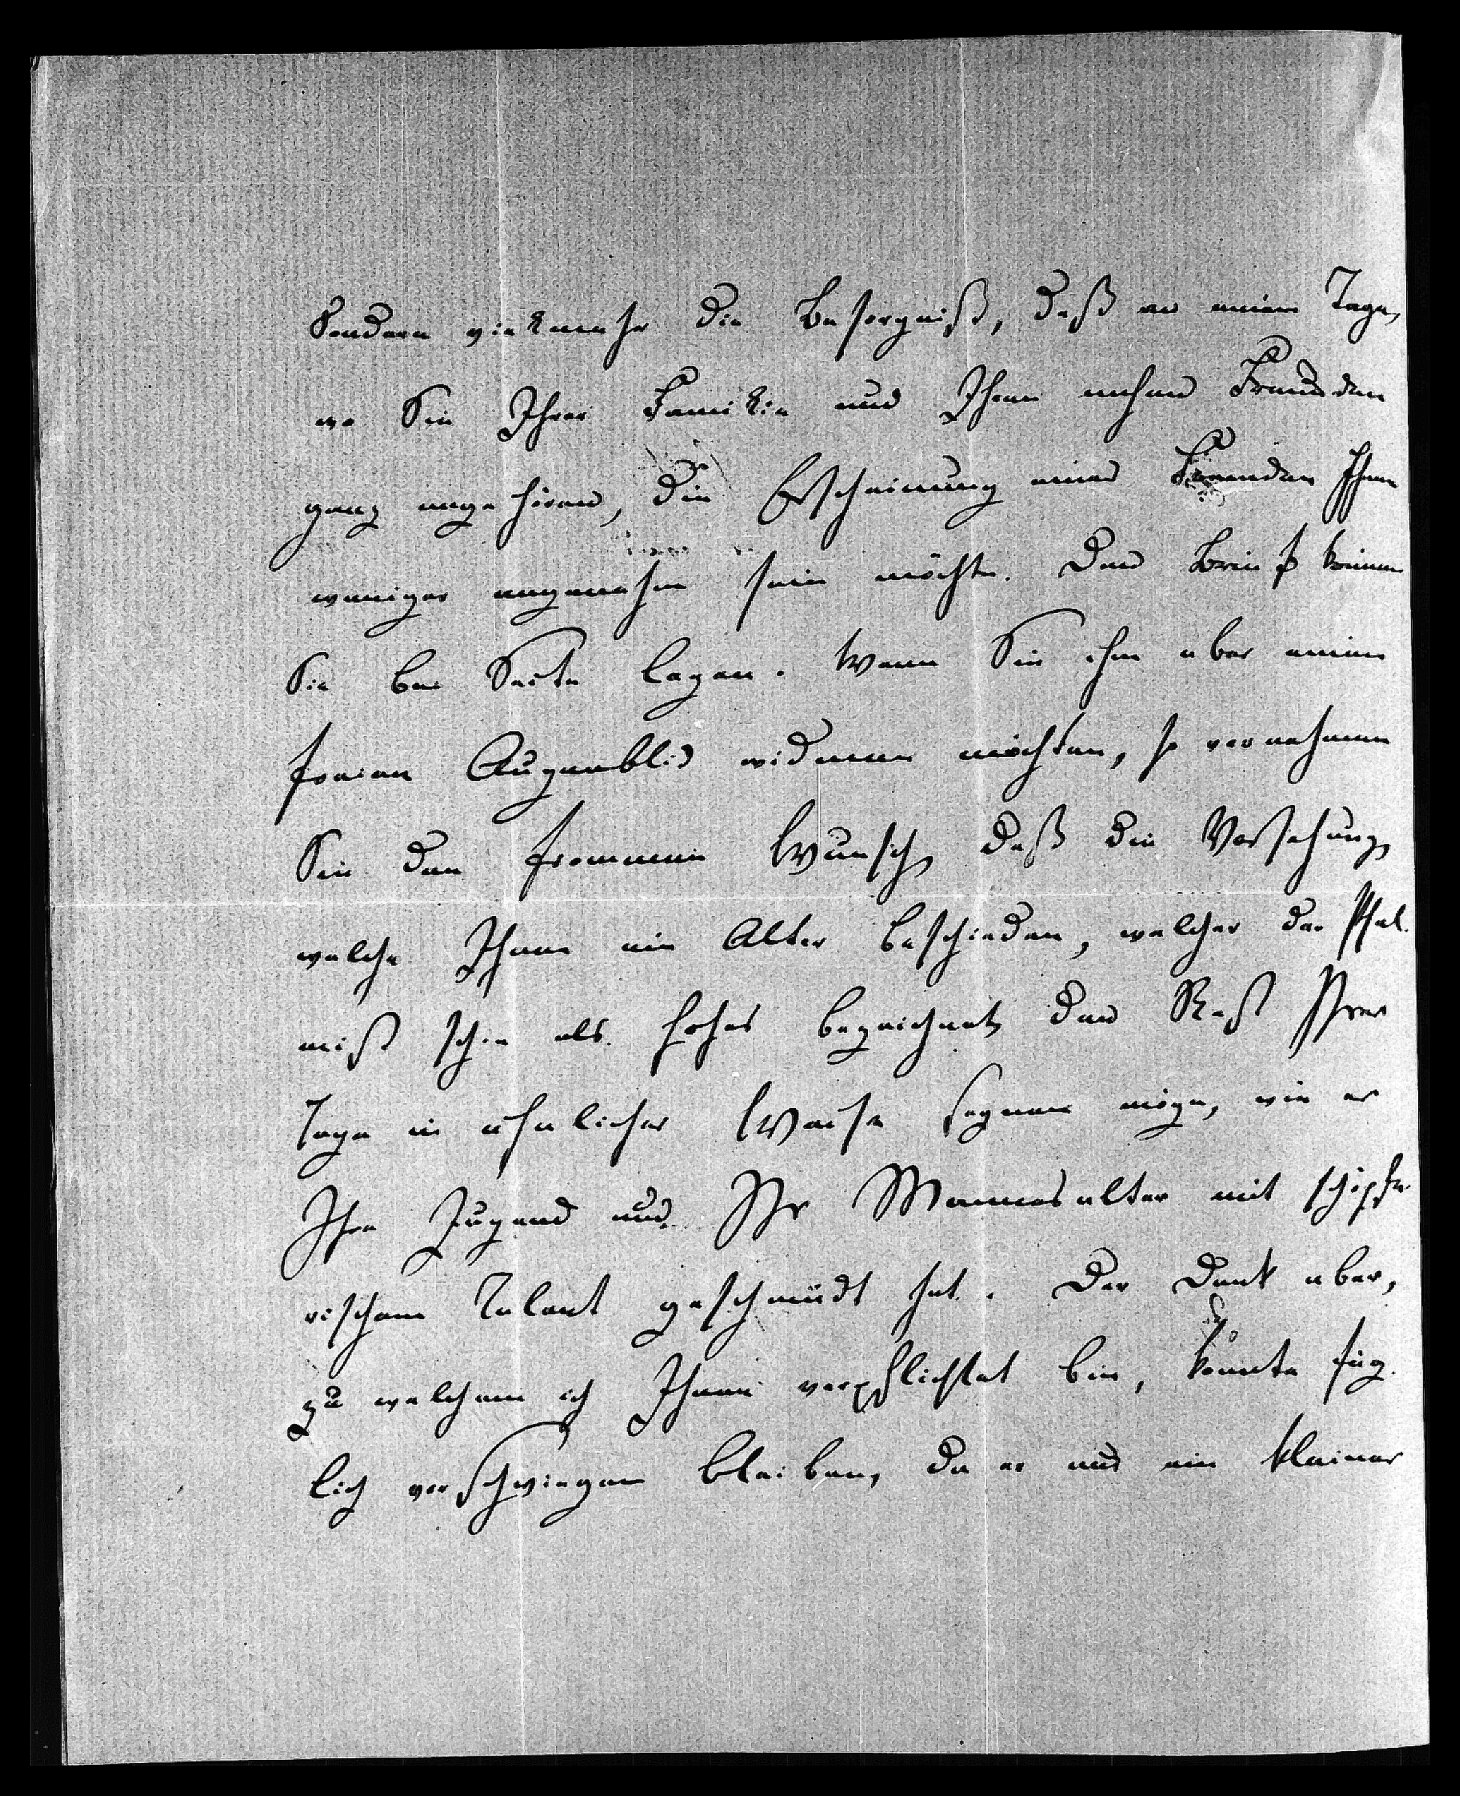 Sondern vielmehr die Besorgniß, daß an einem Tage,
wo Sie Ihrer Familie und Ihren nahen Freunden
ganz angehören, die Erscheinung eines Fremden Ihnen
weniger angenehm sein möchte. Den Brief können
Sie bei Seite legen. Wenn Sie ihm aber einen
freien Augenblick widmen möchten, so vernehmen
Sie den frommen Wunsch, daß die Vorsehung,
welche Ihnen ein Alter beschieden, welches der Psal-
mist schon als hohes bezeichnet, den Rest Ihrer
Tage in ähnlicher Weise segnen möge, wie er
Ihre Jugend und Ihr Mannesalter mit schöpfe-
rischem Talent geschmückt hat. Der Dank aber,
zu welchem ich Ihnen verpflichtet bin, könnte füg-
lich verschwiegen bleiben, da er nur ein kleiner